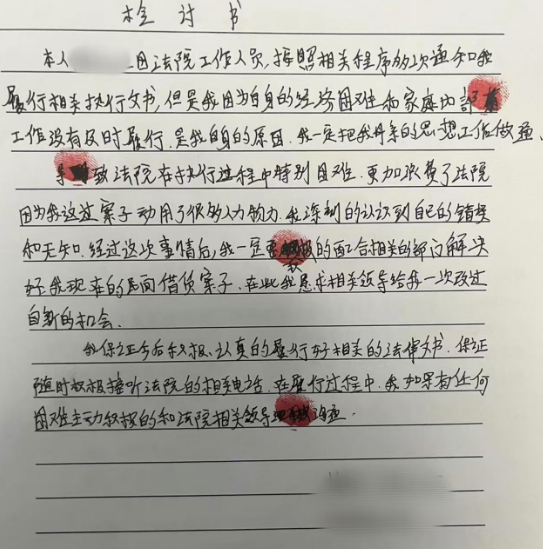 检讨书
本人 因法院工作人员,按照相关程序多次通知我
履行相关执行文书,但是我因为自身的经济困难和家庭内部
工作没有及时履行.是我自身的原因.我一定把我母亲的思想工作做通.
导致法院在执行过程中特别困难.更加浪费了法院
因为我这个案子动用了很多人力物力.我深刻的认识到自己的错误
和无知.经过这次事情后,我一定要积极的配合相关的部门解决
好我现在的民间借贷案子.在此我恳求相关领导给我一次改过
自新的机会.
我保证今后积极、认真的履行好相关的法律文书.保证
随时积极接听法院的相关电话.在履行过程中.我如果有任何
困难主动积极的和法院相关领导 沟通.